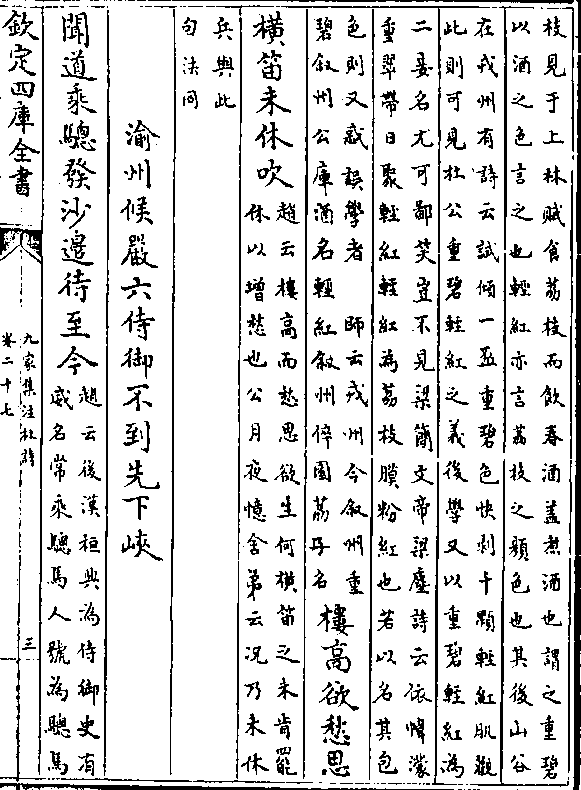 枝見于上林賦食荔枝而飲春酒蓋煮酒也謂之重碧
以酒之色言之也輕紅亦言荔枝之顔色也其後山谷
在戎州有詩云試傾一盃重碧色快剝千顆輕紅肌觀
此則可見杜公重碧輕紅之義後學又以重碧輕紅為
二妾名尤可鄙笑豈不見梁簡文帝梁塵詩云依幃濛
重翠帶日聚輕紅輕紅為荔枝膜粉紅也若以名其包
色則又惑誤學者 師云戎州今叙州重
碧叙州公庫酒名輕紅叙州倅園荔子名
樓高欲愁思
橫笛未休吹
趙云樓高而愁思欲生何橫笛之未肯罷
休以增愁也公月夜憶舍弟云况乃未休
兵與此
句法同
渝州候嚴六侍御不到先下峽
聞道乘驄發沙邊待至今
趙云後漢桓典為侍御史有
威名常乘驄馬人號為驄馬
欽定四庫全書
九家集注杜詩
卷二十七
三